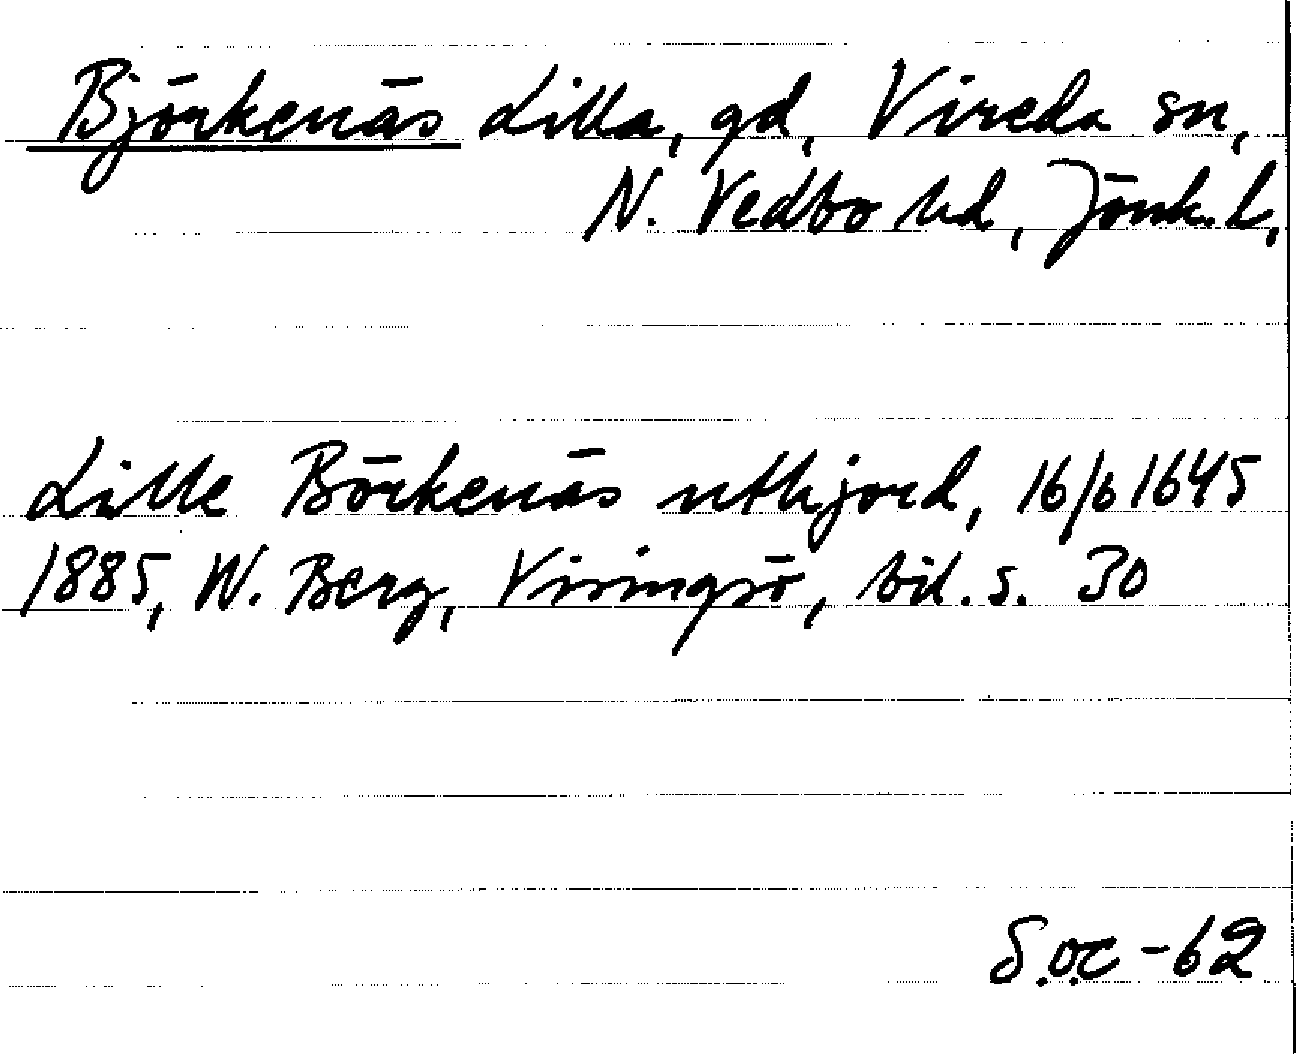 Björkenäs Lilla, gd, Vireda sn,
N. Vedbo hd, Jönk. L,
Lille Börkenäs uthjord, 16/6 1645
1885, W. Berg, Visingsö, bil. s. 30
S.O.C -62